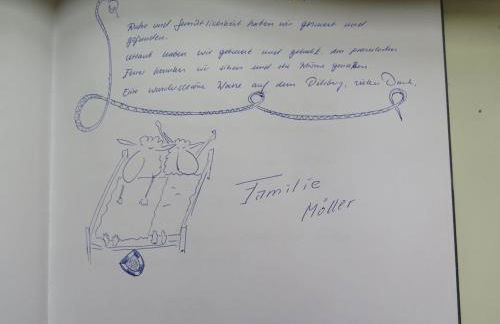 Ruhe und Gemütlichkeit haben wir gesucht und
gefunden.
Urlaub haben wir gebucht und gehabt den
Feuer konnten wir sehen und die Wärme genießen
Eine wunderschöne Woche auf dem Deichberg, vielen Dank,
Familie
Möller